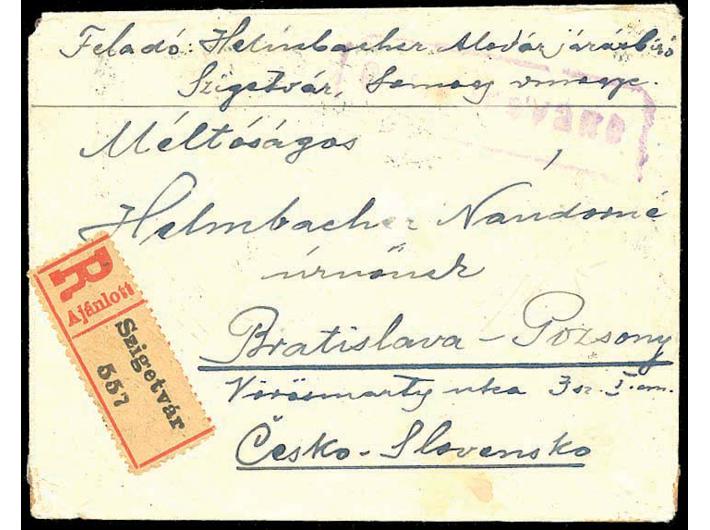 Feladó: Helmbacher Aladár járásbíró
Szigetvár, Somogy vmegye.
Méltóságos
Helmbacher Nándorné
úrnőnek
Bratislava - Pozsony
Vörösmarty utca 3 sz. I. em.
Česko-Slovensko
R.
Ajánlott
Szigetvár
557